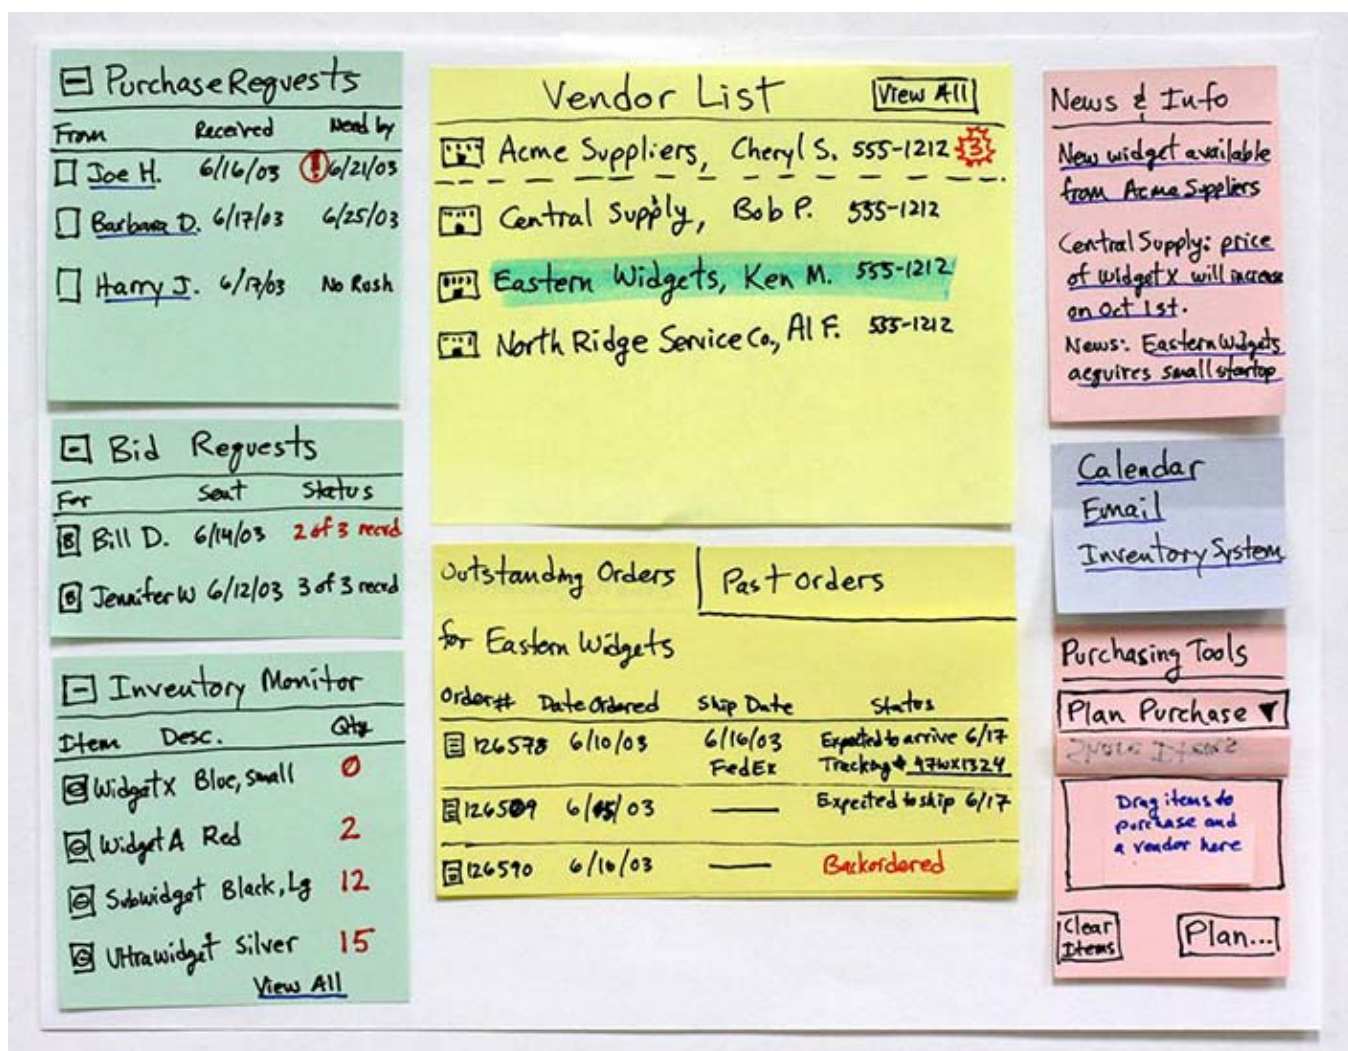 Purchase Requests
From Received Need by
Joe H. 6/16/03 ! 6/21/03
Barbara D. 6/17/03 6/25/03
Harry J. 6/17/03 No Rush
Bid Requests
For Sent Status
B Bill D. 6/14/03 2 of 3 recvd
B Jennifer W 6/12/03 3 of 3 recvd
Inventory Monitor
Item Desc. Qty
Widget X Blue, small 0
Widget A Red 2
Subwidget Black, Lg 12
Ultrawidget Silver 15
View All
Vendor List View All
Acme Suppliers, Cheryl S. 555-1212 3
Central Supply, Bob P. 555-1212
Eastern Widgets, Ken M. 555-1212
North Ridge Service Co., Al F. 555-1212
Outstanding Orders Past Orders
for Eastern Widgets
Order# Date Ordered Ship Date Status
126578 6/10/03 6/16/03 Expected to arrive 6/17
FedEx Tracking # 97WX1324
126589 6/15/03 — Expected to ship 6/17
126590 6/10/03 — Backordered
News & Info
New widget available
from Acme Suppliers
Central Supply: price
of widget X will increase
on Oct 1st.
News: Eastern Widgets
acquires small startup
Calendar
Email
Inventory System
Purchasing Tools
Plan Purchase ▼
Drag items to
purchase and
a vendor here
Clear
Items
Plan...